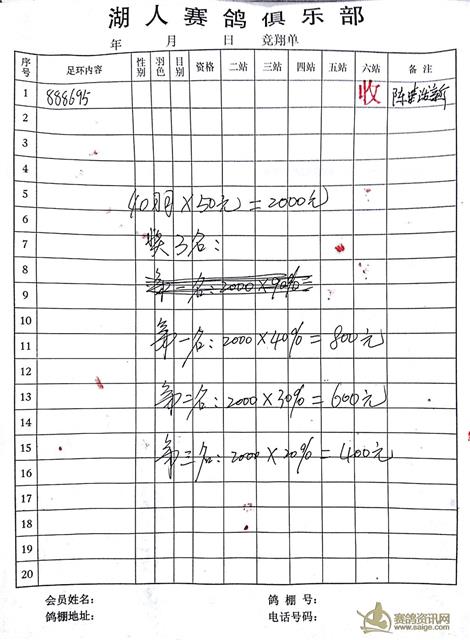 湖人赛鸽俱乐部
年 月 日 竞翔单
序号 足环内容 性别 羽色 目别 资格 二站 三站 四站 五站 六站 备注
1 888695 收
2
3
4
5
(40 × 50元 = 2000元)
6
7 奖3名:
8 第一名: 2000 × 90% =
9
10
11 第一名: 2000 × 40% = 800元
12
13 第二名: 2000 × 30% = 600元
14
15 第三名: 2000 × 20% = 400元
16
17
18
19
20
会员姓名: 鸽棚号:
鸽棚地址: 电话号码:
赛鸽资讯网
www.saige.com